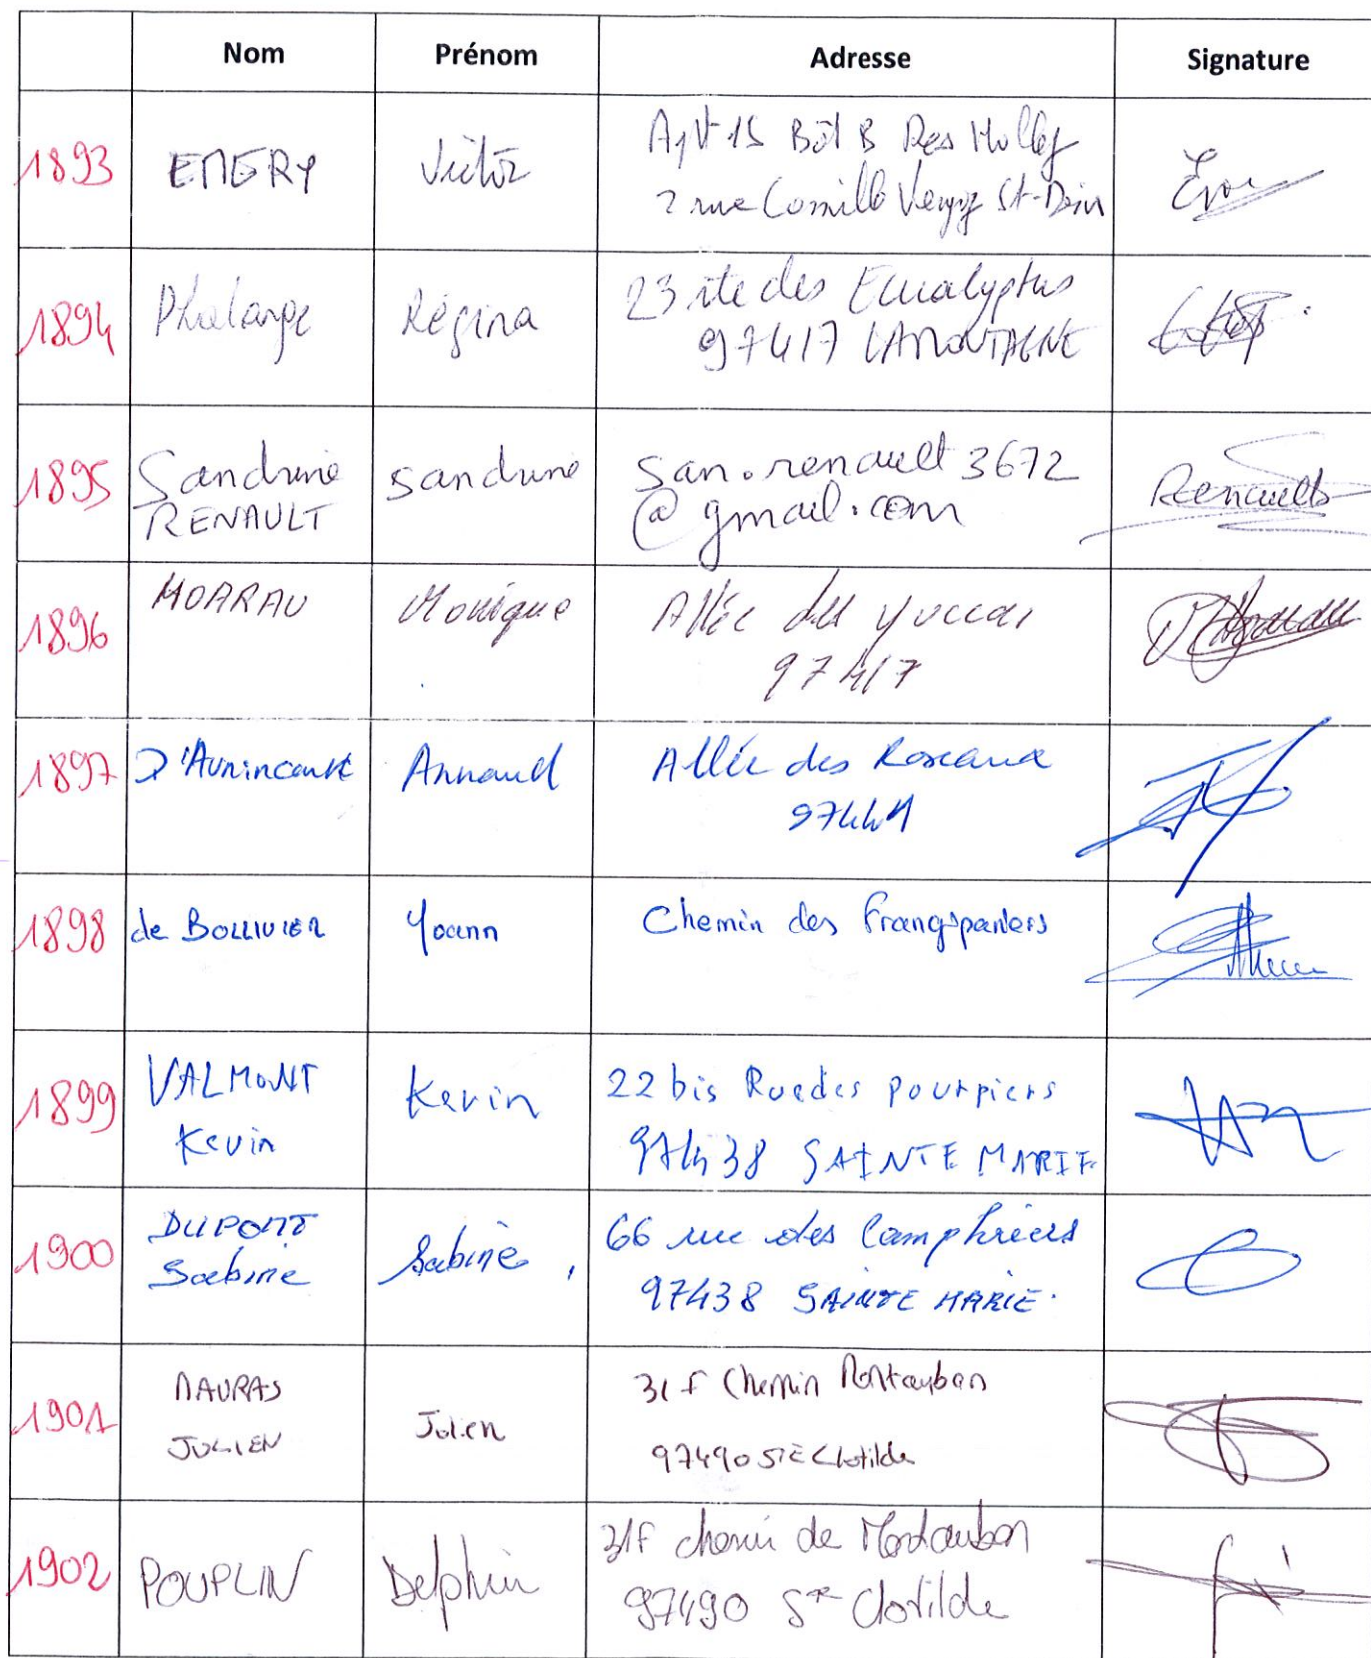 Nom Prénom Adresse Signature
1893 EMERY Victor Apt 15 Bât B Res
2 rue St-Denis
1894 Phalange Régina 23 ite des Eucalyptus
97417 LA MONTAGNE
1895 Sandrine sandrine san.renault3672
RENAULT @gmail.com Renault
1896 HOARAU Monique Allée des yuccas
97417
1897 D'Aunincourt Arnaud Allée des Roseaux
97441
1898 de BOLLIVIER Yoann Chemin des frangipaniers
1899 VALMONT Kevin 22 bis Rue des pourpiers
Kevin 97438 SAINTE MARIE
1900 DUPONT Sabine, 66 rue des Camphriers
Sabine 97438 SAINTE MARIE.
1901 MAURAS Julien 31 F Chemin Montauban
JULIEN 97490 STE Clotilde
1902 POUPLIN Delphin 31F chemin de Montauban
97490 Ste Clotilde